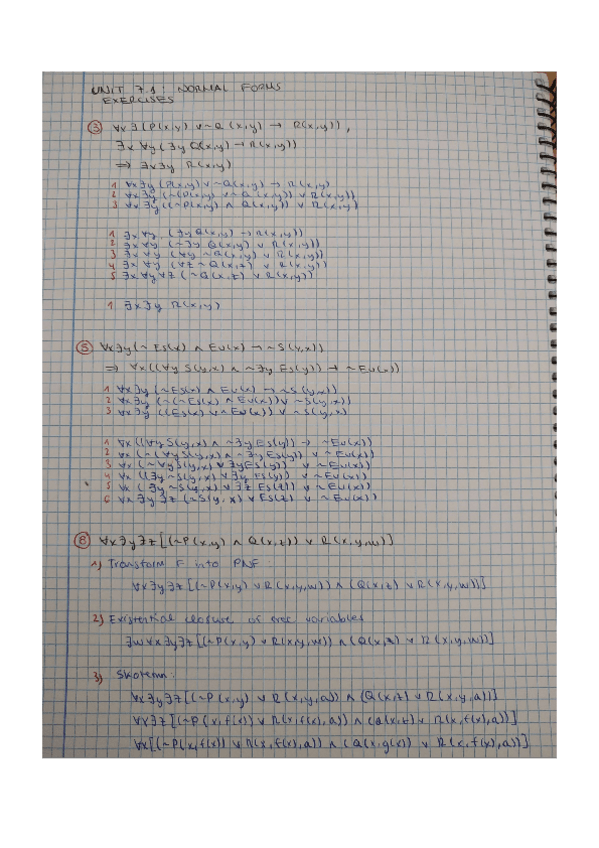 UNIT 7.1: NORMAL FORMS
EXERCISES
③ ∀x∃(P(x,y) ∨ ~Q(x,y) → R(x,y)),
∃x ∀y (∃y Q(x,y) → R(x,y))
⇒ ∃x∃y R(x,y)
1 ∀x∃y (P(x,y) ∨ ~Q(x,y) → R(x,y)
2 ∀x∃y (~(P(x,y) ∨ ~Q(x,y)) ∨ R(x,y))
3 ∀x∃y ((~P(x,y) ∧ Q(x,y)) ∨ R(x,y)
1 ∃x ∀y (∃y Q(x,y) → R(x,y))
2 ∃x ∀y (~∃y Q(x,y) ∨ R(x,y))
3 ∃x ∀y (∀y ~Q(x,y) ∨ R(x,y))
4 ∃x ∀y (∀z ~Q(x,z) ∨ R(x,y))
5 ∃x ∀y ∀z (~Q(x,z) ∨ R(x,y))
1 ∃x∃y R(x,y)
⑤ ∀x∃y(~Es(x) ∧ Eu(x) → ~S(y,x))
⇒ ∀x((∀y S(y,x) ∧ ~∃y Es(y)) → ~Eu(x))
1 ∀x∃y (~Es(x) ∧ Eu(x) → ~S(y,x))
2 ∀x∃y (~(~Es(x) ∧ Eu(x)) ∨ ~S(y,x))
3 ∀x∃y ((Es(x) ∨ ~Eu(x)) ∨ ~S(y,x)
1 ∀x ((∀y S(y,x) ∧ ~∃y Es(y)) → ~Eu(x))
2 ∀x (~(∀y S(y,x) ∧ ~∃y Es(y)) ∨ ~Eu(x))
3 ∀x (~∀y S(y,x) ∨ ∃y Es(y)) ∨ ~Eu(x))
4 ∀x ((∃y ~S(y,x) ∨ ∃y Es(y)) ∨ ~Eu(x))
5 ∀x (∃y ~S(y,x) ∨ ∃z Es(z)) ∨ ~Eu(x))
6 ∀x ∃y ∃z (~S(y,x) ∨ Es(z) ∨ ~Eu(x))
⑧ ∀x∃y∃z[(~P(x,y) ∧ Q(x,z)) ∨ R(x,y,w)]
1) Transform F into PNF:
∀x∃y∃z[(~P(x,y) ∨ R(x,y,w)) ∧ (Q(x,z) ∨ R(x,y,w))]
2) Existential closure of free variables
∃w∀x∃y∃z[(~P(x,y) ∨ R(x,y,w)) ∧ (Q(x,z) ∨ R(x,y,w))]
3) Skolem:
∀x∃y∃z[(~P(x,y) ∨ R(x,y,a)) ∧ (Q(x,z) ∨ R(x,y,a))]
∀x∃z[(~P(x,f(x)) ∨ R(x,f(x),a)) ∧ (Q(x,z) ∨ R(x,f(x),a))]
∀x[(~P(x,f(x)) ∨ R(x,f(x),a)) ∧ (Q(x,g(x)) ∨ R(x,f(x),a))]